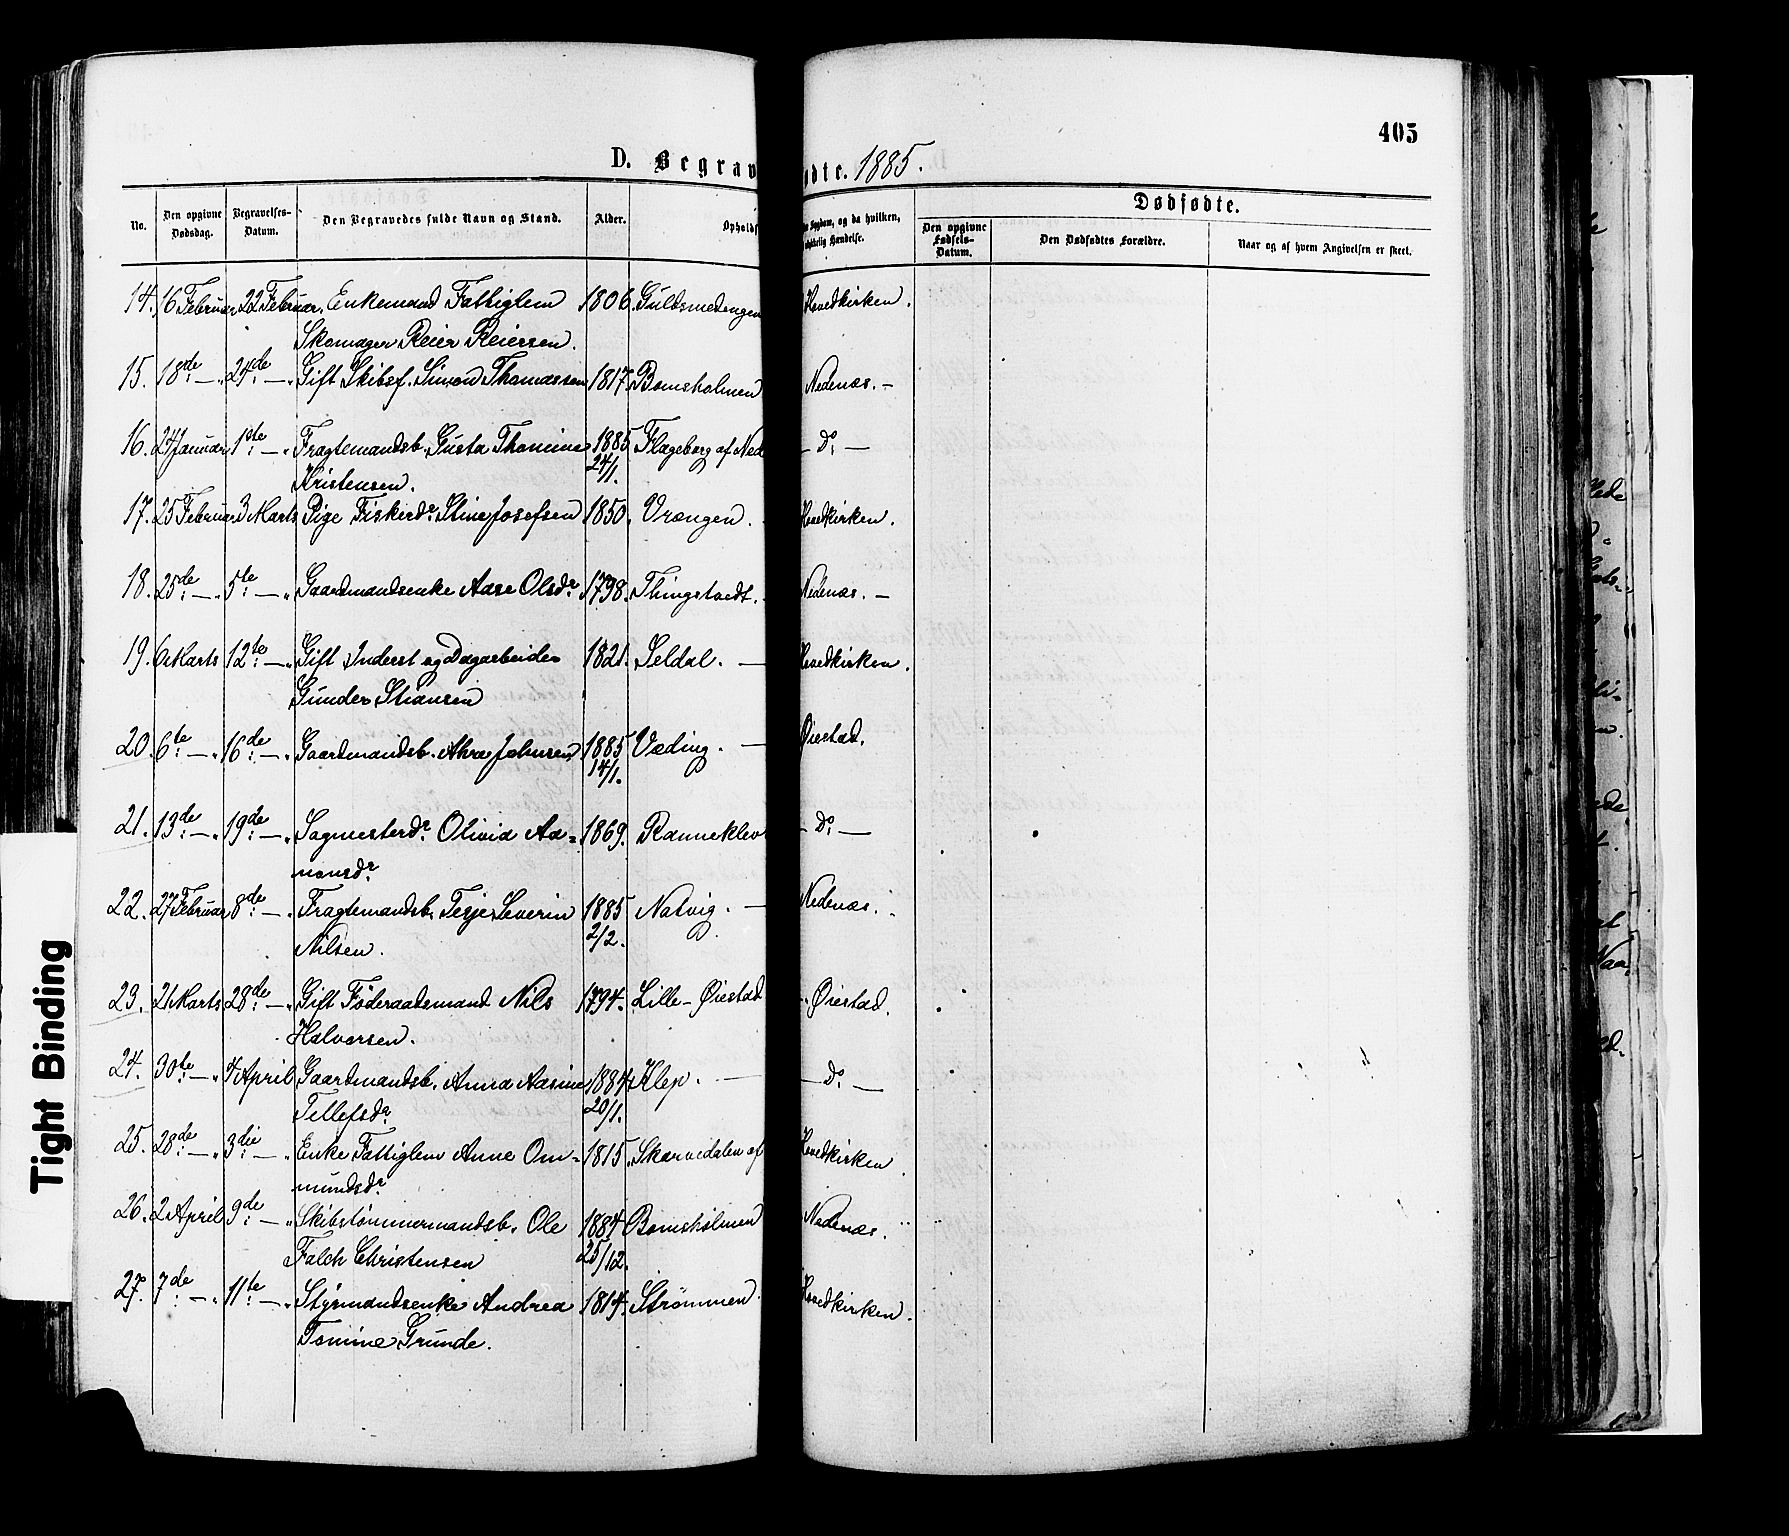 405
D. Begrav
ødte. 1885.
No.
Den opgivne Dødsdag.
Begravelses-Datum.
Den Begravedes fulde Navn og Stand.
Alder.
Opholds
Sygdom, og da hvilken,
Hændelse.
Dødfødte.
Den opgivne Fødsels-Datum.
Den Dødfødtes Forældre.
Naar og af hvem Angivelsen er skeet.
14. 16 Februar 22 Februar. Enkemand Fattiglem 1806. Guldsmedengen Hovedkirken.
Skomager Reier Reiersen.
15. 18de — „ 24de — „ Gift Skibsf. Simon Thomassen 1817. Bomsholmen Nedenæs. —
16. 24 Januar 1ste — „ Fragtemandsb. Gusta Thomine 1885 Flageborg af Ned — Do —
Kristensen. 24/1.
17. 25 Februar 3 Marts Pige Fiskerdr. Stine Josefsen 1850. Vrængen. Hovedkirken.
18. 25de — „ 5te — „ Gaardmandsenke Aase Olsdr. 1798. Thingstvedt. Nedenæs. —
19. 6 Marts 12te — „ Gift Inderst og Dagarbeider 1821. Seldal. — Hovedkirken.
Gunder Stiansen
20. 6te — „ 16de — „ Gaardmandsb. Johnsen, 1885 Væding. — Øiestad.
14/1.
21. 13de — „ 19de — „ Sagmesterdr. Olivia Aa= 1869. Ranneklev — Do —
nonsdr.
22. 27 Februar 8de — „ Fragtemandsb. Terje Severin 1885 Natvig. — Nedenæs.
Nilsen. 2/2.
23. 21 Marts 28de — „ Gift Føderaadsmand Nils 1794. Lille-Øiestad - Øiestad.
Halvorsen.
24. 30te — „ 4 April Gaardmandsb. Anna Aasine 1884 Klep. — — Do —
Tellefsdr. 20/1.
25. 28de — „ 3die — „ Enke Fattiglem Anne Om= 1815. Skarvedalen af Hovedkirken
mundsdr.
26. 2 April 9de — „ Skibstømmermandsb. Ole 1884 Bomsholmen Nedenæs.
Falch Christensen 25/12.
27. 7de — „ 11te — „ Styrmandsenke Andrea 1814. Strømmen. Hovedkirken.
Tomine Grunde.
Tight Binding